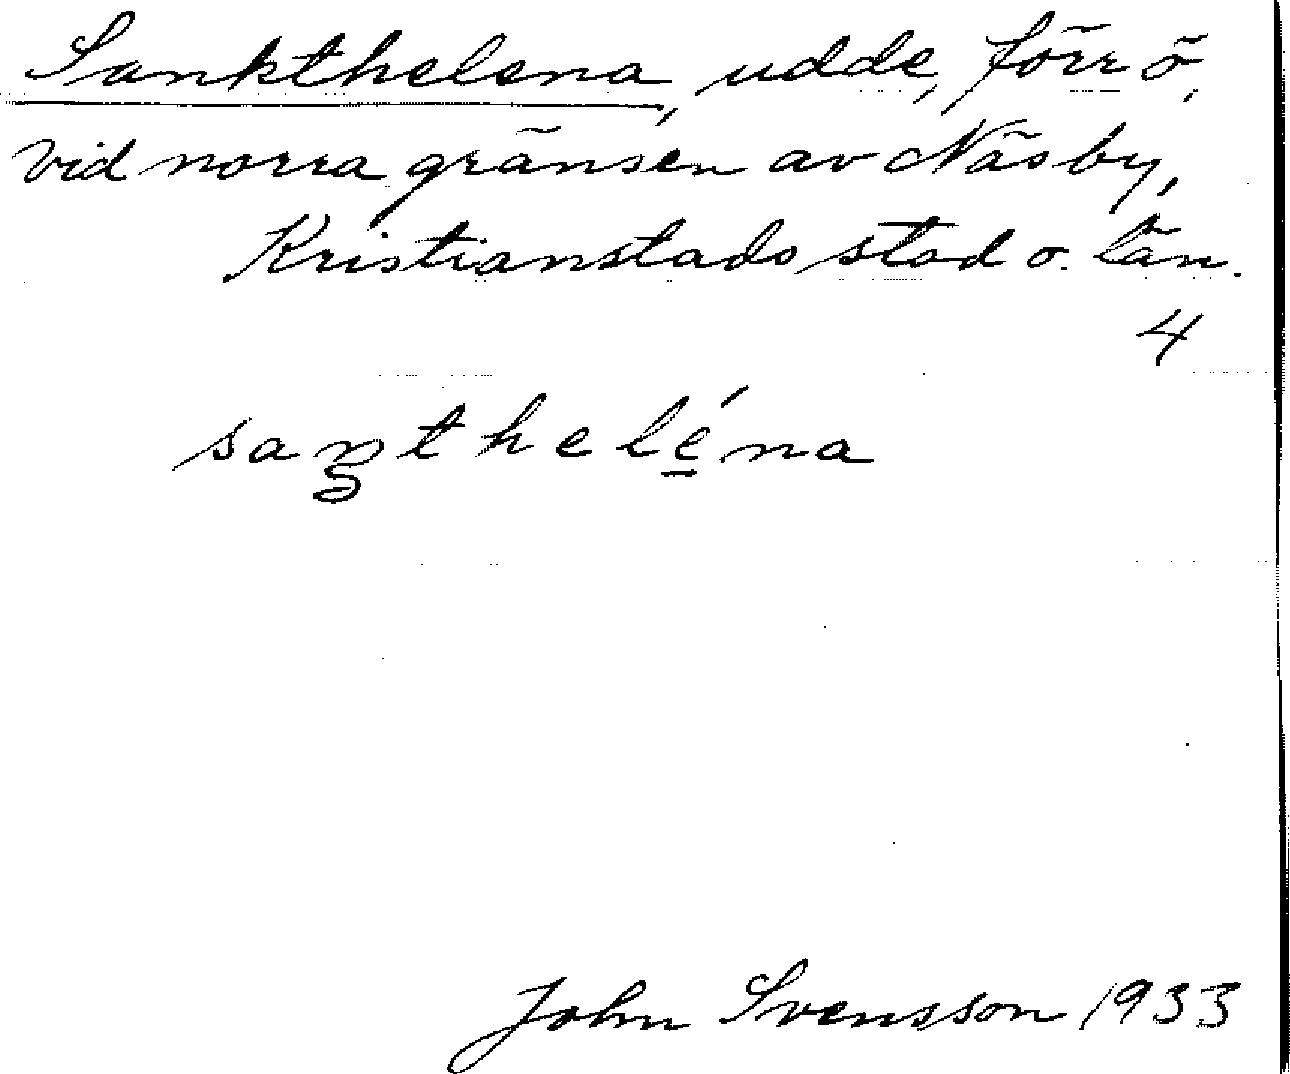 Sankthelena, udde, förr ö,
vid norra gränsen av Näsby,
Kristianstads stad o. län.
4
saŋthelé̱na
John Svensson 1933